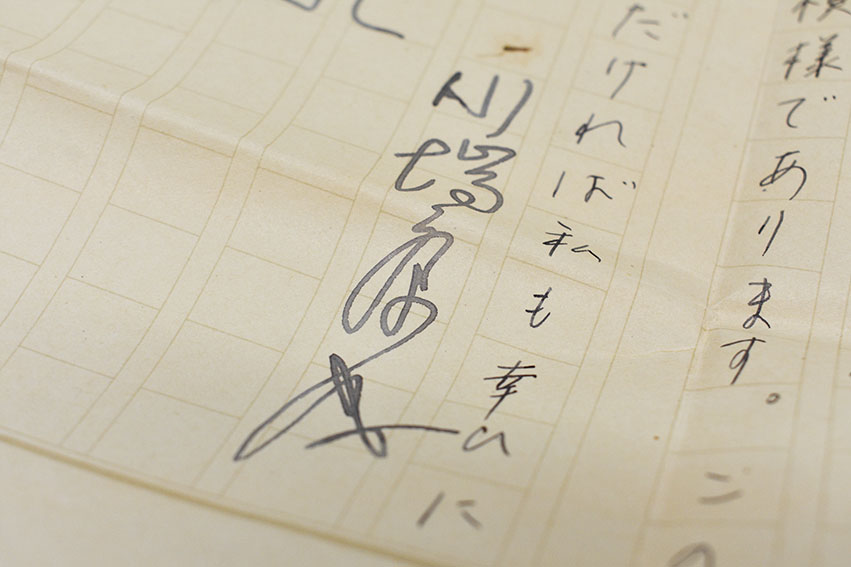 模様であります。この
だければ私も幸いに
川端康成